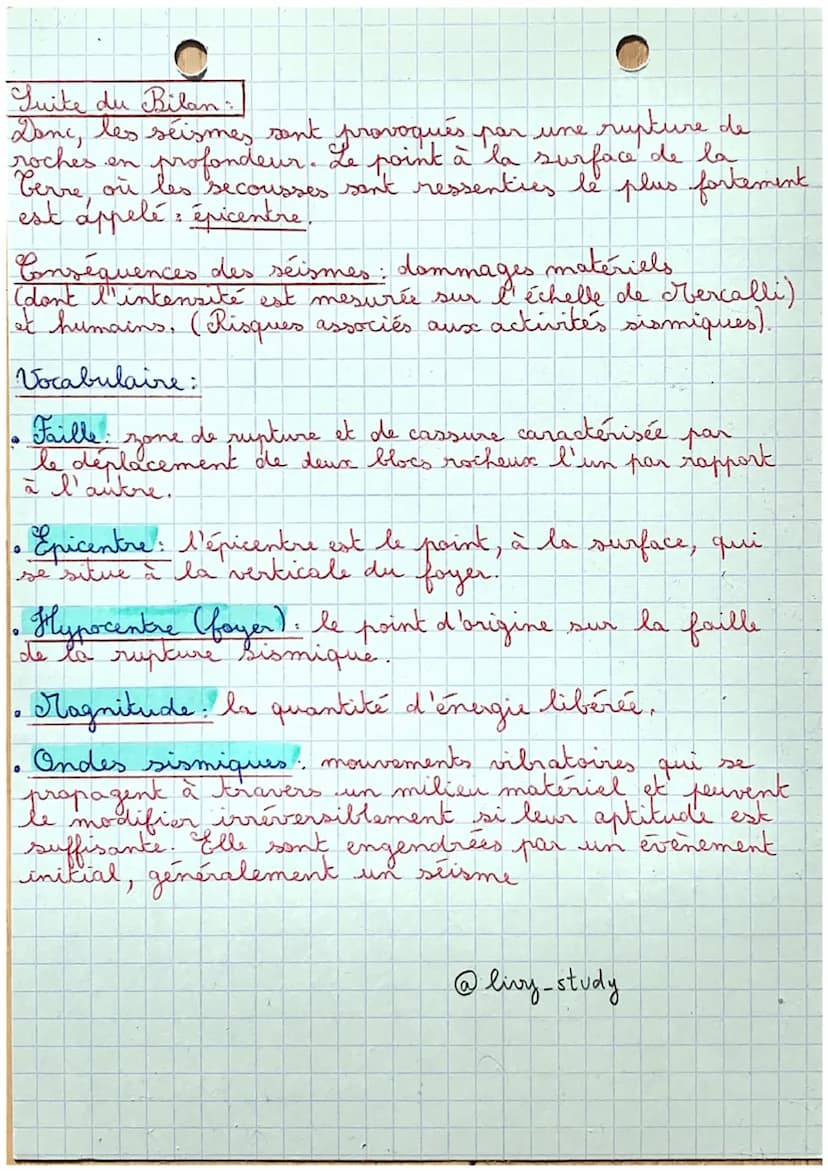 Suite du Bilan :
Donc, les séismes sont provoqués par une rupture de
roches en profondeur. Le point à la surface de la
Terre, où les secousses sont ressenties le plus fortement
est appelé : épicentre.
Conséquences des séismes : dommages matériels
(dont l'intensité est mesurée sur l'échelle de Mercalli)
et humains. (Risques associés aux activités sismiques).
Vocabulaire :
• Faille : zone de rupture et de cassure caractérisée par
le déplacement de deux blocs rocheux l'un par rapport
à l'autre.
• Epicentre : l'épicentre est le point, à la surface, qui
se situe à la verticale du foyer.
• Hypocentre (foyer) : le point d'origine sur la faille
de la rupture sismique.
• Magnitude : la quantité d'énergie libérée.
• Ondes sismiques : mouvements vibratoires qui se
propagent à travers un milieu matériel et peuvent
le modifier irréversiblement si leur aptitude est
suffisante. Elle sont engendrées par un évènement
initial, généralement un séisme
@livy_study